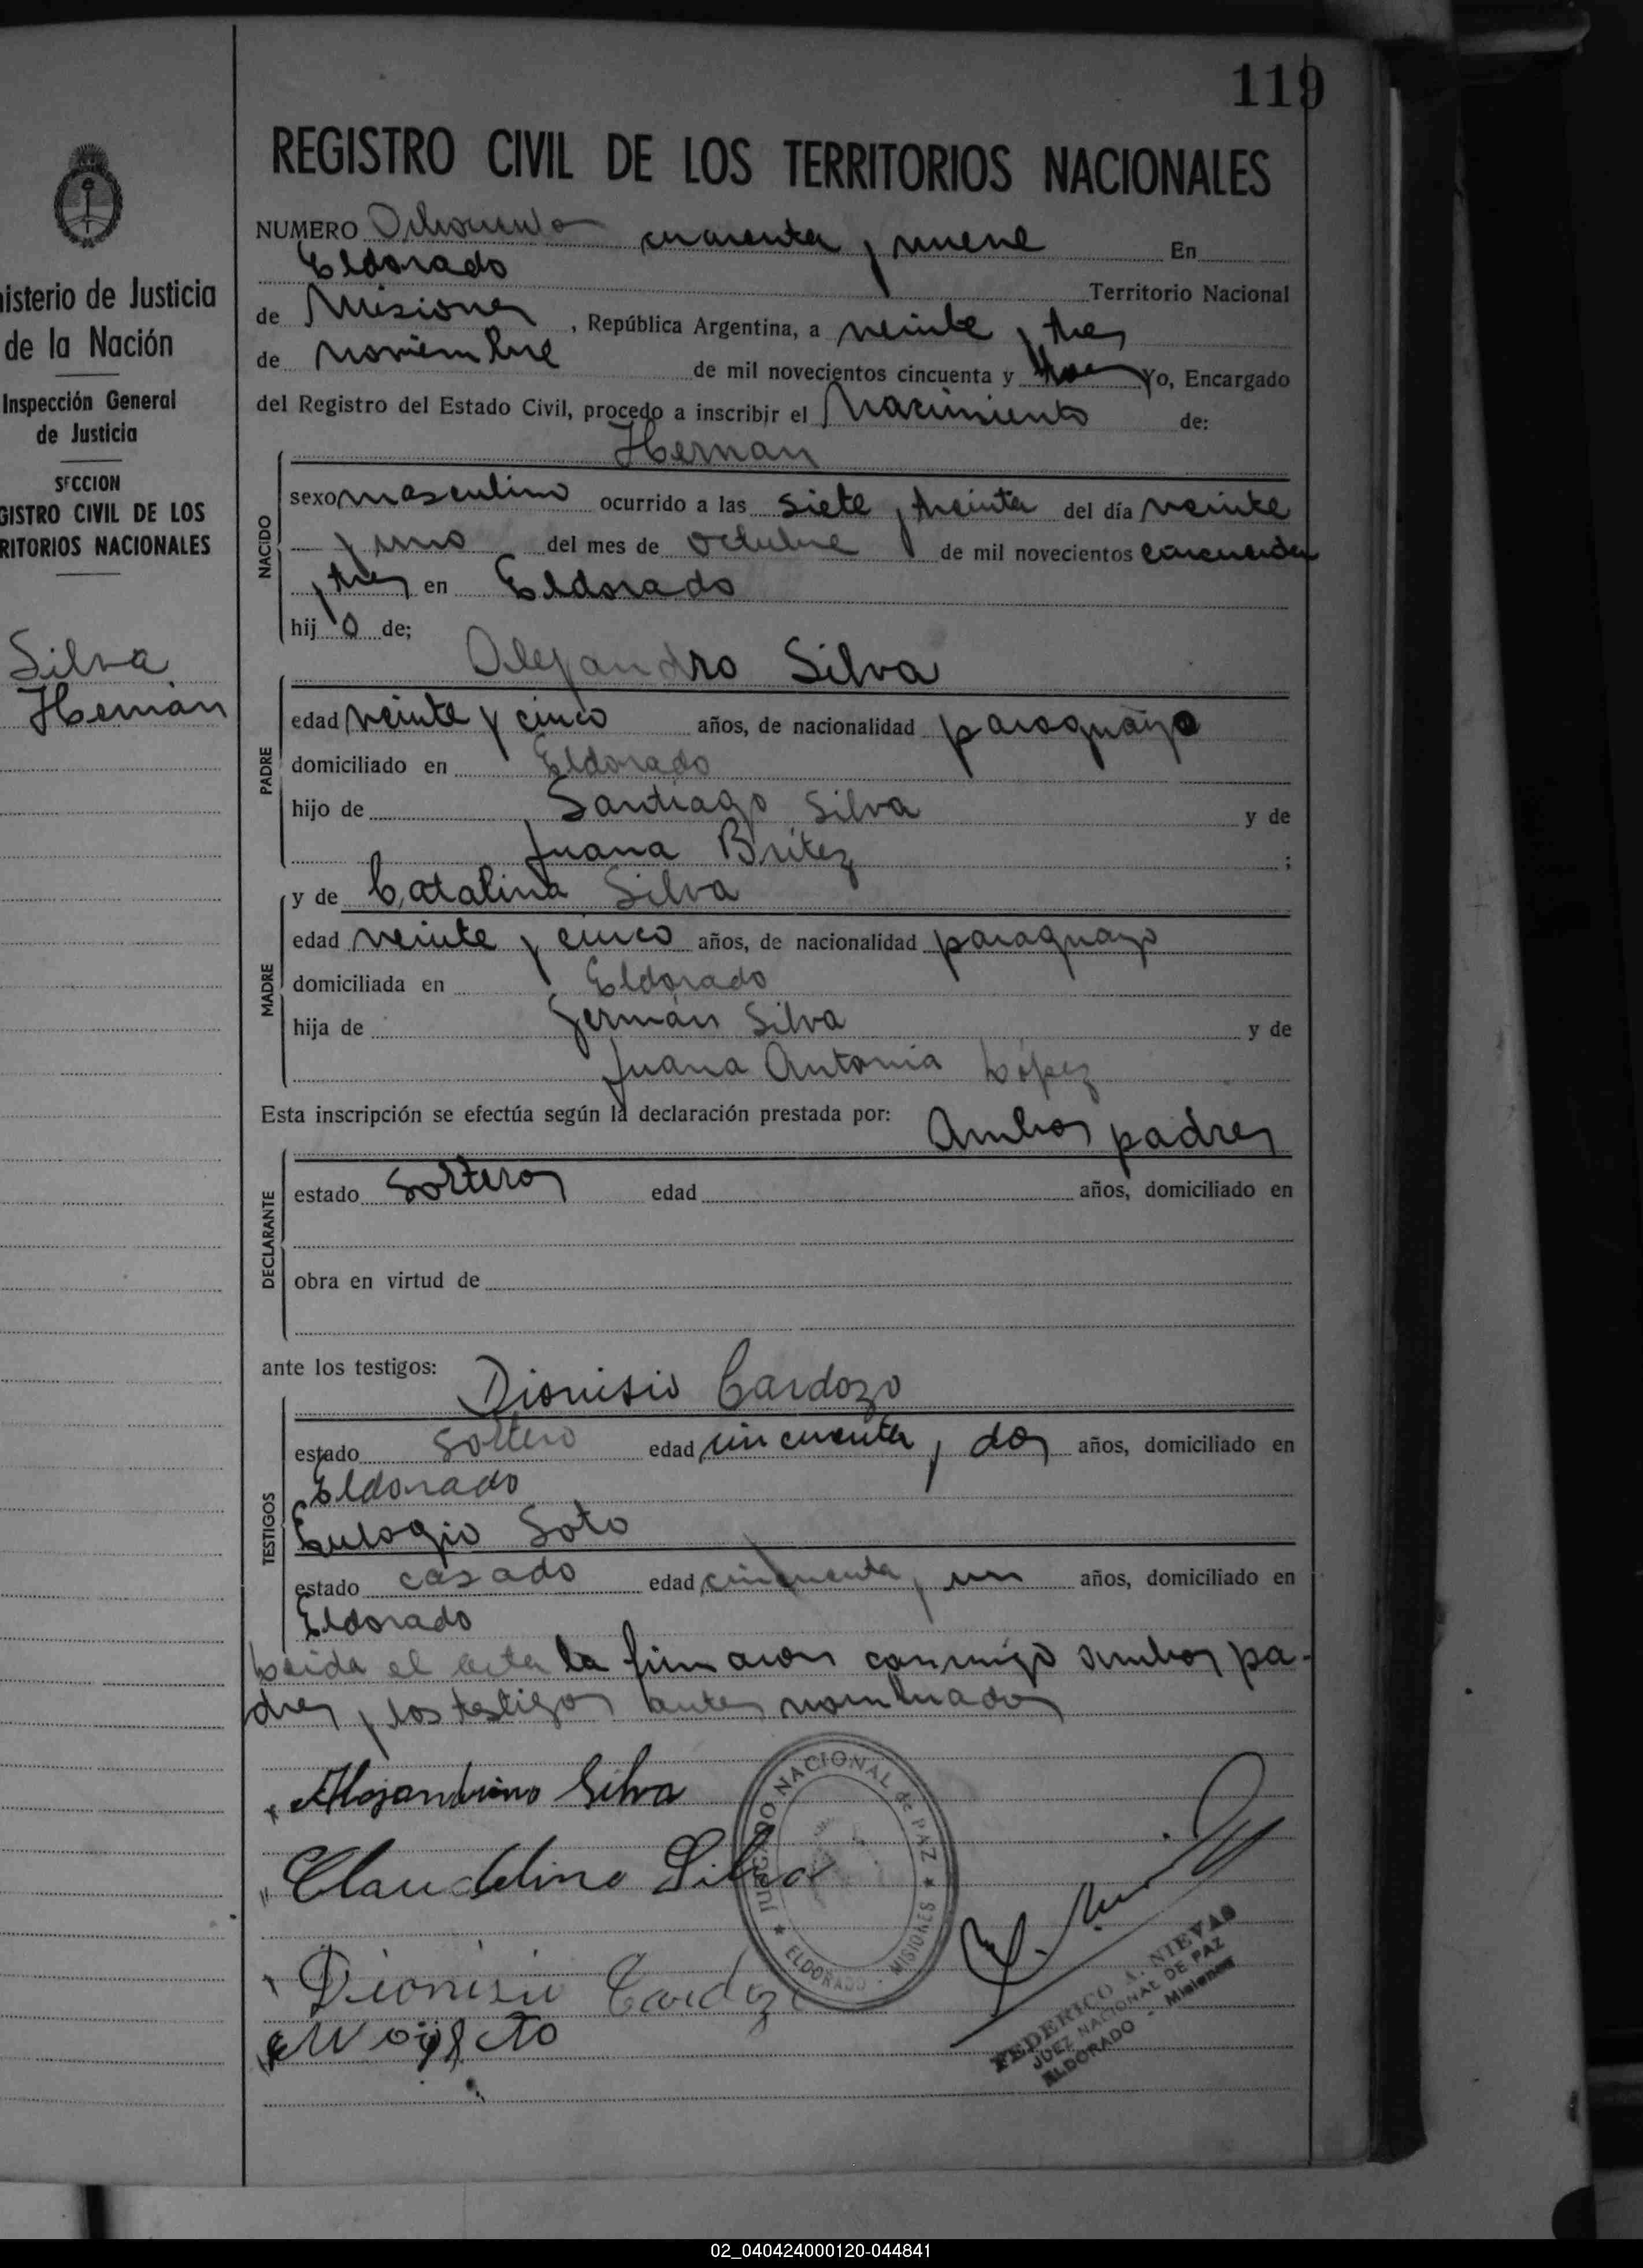 119
REGISTRO CIVIL DE LOS TERRITORIOS NACIONALES
NUMERO Ochocientos cuarenta y nueve En
Eldorado Territorio Nacional
de Misiones, República Argentina, a veinte y tres
de noviembre de mil novecientos cincuenta y tres Yo, Encargado
del Registro del Estado Civil, procedo a inscribir el Nacimiento de:
Hernan
NACIDO
sexo masculino ocurrido a las siete y treinta del día veinte
y uno del mes de octubre de mil novecientos cincuenta
y tres en Eldorado
hijo de;
Alejandro Silva
PADRE
edad veinte y cinco años, de nacionalidad paraguayo
domiciliado en Eldorado
hijo de Santiago Silva y de
Juana Britez ;
y de Catalina Silva
MADRE
edad veinte y cinco años, de nacionalidad paraguayo
domiciliada en Eldorado
hija de Germán Silva y de
Juana Antonia López
Esta inscripción se efectúa según la declaración prestada por: Ambos padres
DECLARANTE
estado solteros edad años, domiciliado en
obra en virtud de
ante los testigos: Dionisio Cardozo
TESTIGOS
estado soltero edad cincuenta y dos años, domiciliado en
Eldorado
Eulogio Soto
estado casado edad cincuenta y un años, domiciliado en
Eldorado
Leida el acta la firmaron conmigo ambos pa-
dres y los testigos antes nombrados
Alejandrino Silva
Claudelina Silva
Dionisio Cardozo
JUZGADO NACIONAL de PAZ
ELDORADO - MISIONES
FEDERICO A. NIEVAS
JUEZ NACIONAL DE PAZ
ELDORADO - Misiones
nisterio de Justicia
de la Nación
Inspección General
de Justicia
SECCION
GISTRO CIVIL DE LOS
RITORIOS NACIONALES
Silva
Hernán
02_040424000120-044841